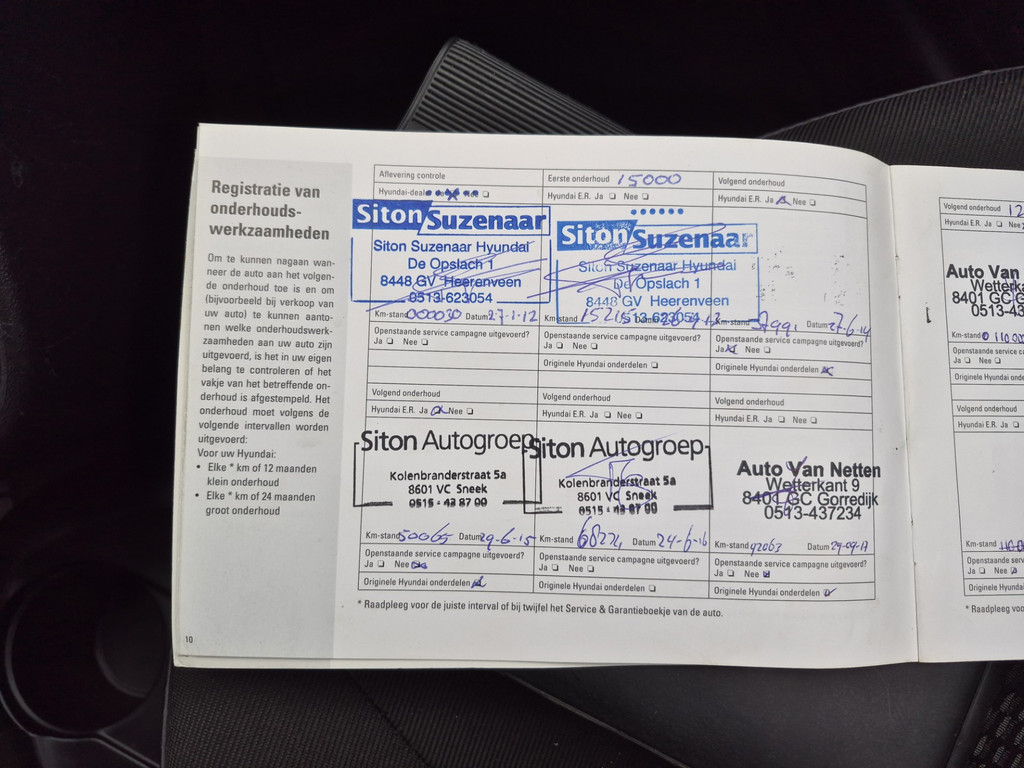 Registratie van
onderhouds-
werkzaamheden
Om te kunnen nagaan wan-
neer de auto aan het volgen-
de onderhoud toe is en om
(bijvoorbeeld bij verkoop van
uw auto) te kunnen aanto-
nen welke onderhoudswerk-
zaamheden aan uw auto zijn
uitgevoerd, is het in uw eigen
belang te controleren of het
vakje van het betreffende on-
derhoud is afgestempeld. Het
onderhoud moet volgens de
volgende intervallen worden
uitgevoerd:
Voor uw Hyundai:
• Elke * km of 12 maanden
klein onderhoud
• Elke * km of 24 maanden
groot onderhoud
10
Aflevering controle
Hyundai-deal
Siton Suzenaar
Siton Suzenaar Hyundai
De Opslach 1
8448 GV Heerenveen
0513-623054
Km-stand 000030 Datum 27-1-12
Openstaande service campagne uitgevoerd?
Ja Nee
Eerste onderhoud 15000
Hyundai E.R. Ja Nee
Siton Suzenaar
Siton Suzenaar Hyundai
De Opslach 1
8448 GV Heerenveen
0513-623054
Km-stand
Openstaande service campagne uitgevoerd?
Ja Nee
Originele Hyundai onderdelen
Volgend onderhoud
Hyundai E.R. Ja Nee
Km-stand Datum 27-6-14
Openstaande service campagne uitgevoerd?
Ja Nee
Originele Hyundai onderdelen
Volgend onderhoud
Hyundai E.R. Ja Nee
Siton Autogroep
Kolenbranderstraat 5a
8601 VC Sneek
0515 - 43 87 00
Km-stand 50065 Datum 29-6-15
Openstaande service campagne uitgevoerd?
Ja Nee
Originele Hyundai onderdelen
Volgend onderhoud
Hyundai E.R. Ja Nee
Siton Autogroep
Kolenbranderstraat 5a
8601 VC Sneek
0515 - 43 87 00
Km-stand Datum 24-6-16
Openstaande service campagne uitgevoerd?
Ja Nee
Originele Hyundai onderdelen
Volgend onderhoud
Hyundai E.R. Ja Nee
Auto Van Netten
Wetterkant 9
8401 GC Gorredijk
0513-437234
Km-stand 92063 Datum 29-09-17
Openstaande service campagne uitgevoerd?
Ja Nee
Originele Hyundai onderdelen
* Raadpleeg voor de juiste interval of bij twijfel het Service & Garantieboekje van de auto.
Volgend onderhoud 12
Hyundai E.R. Ja Nee
Auto Van
8401 GC
0513-43
Km-stand
Openstaande service
Ja Nee
Originele Hyundai onde
Volgend onderhoud
Hyundai E.R. Ja
Km-stand
Openstaande serv
Ja Nee
Originele Hyunda
* Raadpleeg voo